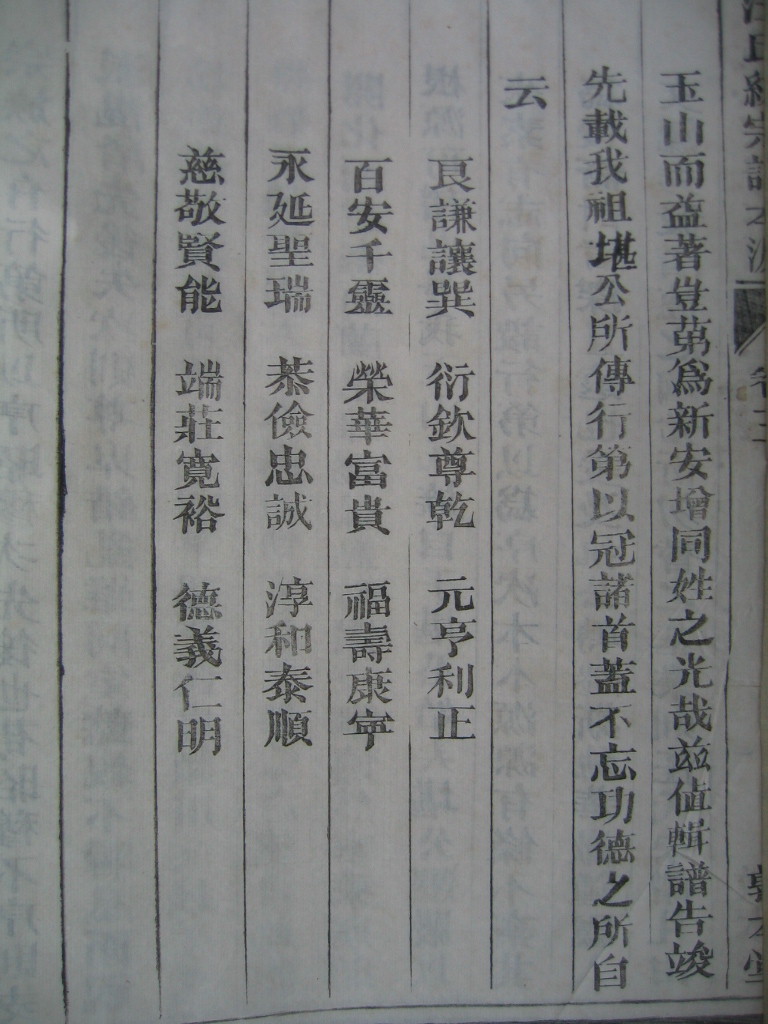 汪氏統宗譜本源 卷之 敦本堂
玉山而益著豈苐爲新安增同姓之光哉玆值輯譜告竣
先載我祖堪公所傳行第以冠諸首蓋不忘功德之所自
云
良謙讓巽 衍欽尊乾 元亨利正
百安千靈 榮華富貴 福壽康寜
永延聖瑞 恭儉忠誠 淳和泰順
慈敬賢能 端莊寬裕 德義仁明